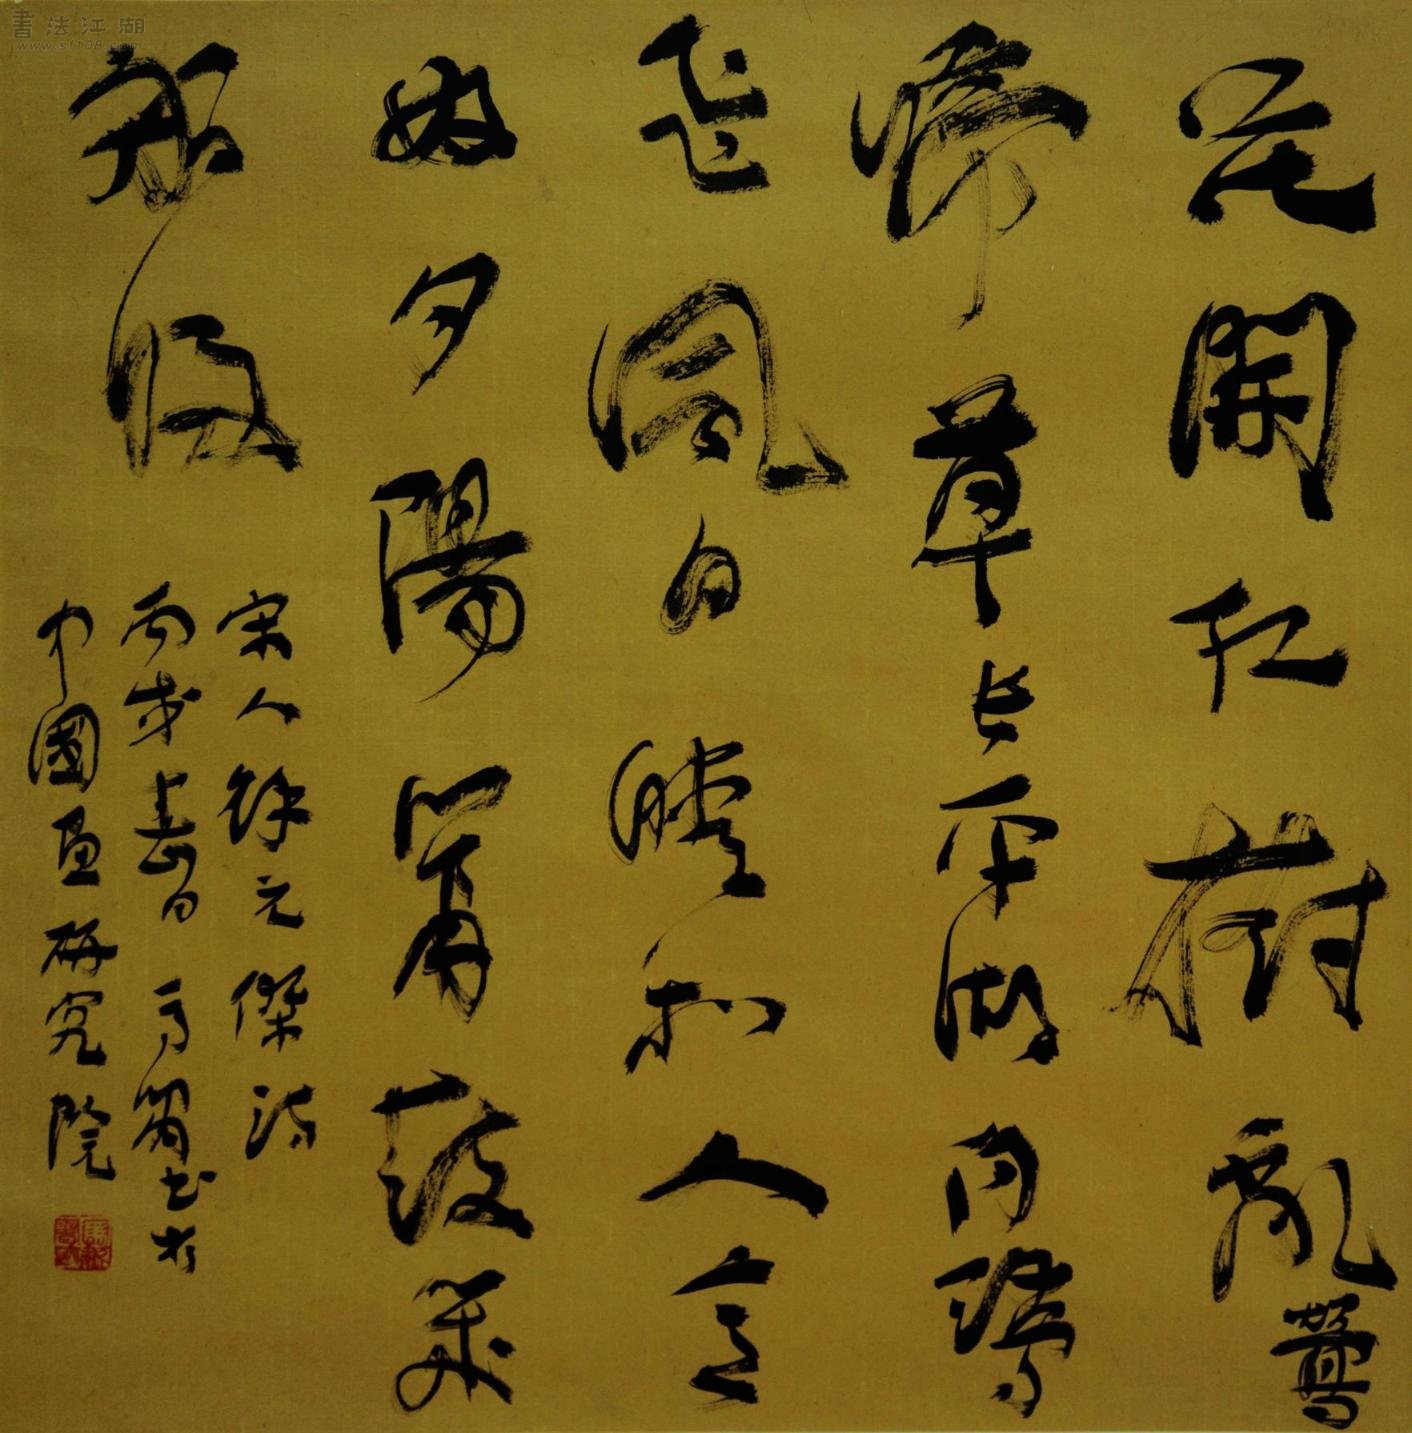 書法江湖
www.sf108.com
花開紅樹亂鶯
啼草長平湖白鷺
飛風日晴和人意
好夕陽簫鼓幾
船歸
宋人徐元傑詩
丙戌春日書於
中國畫研究院